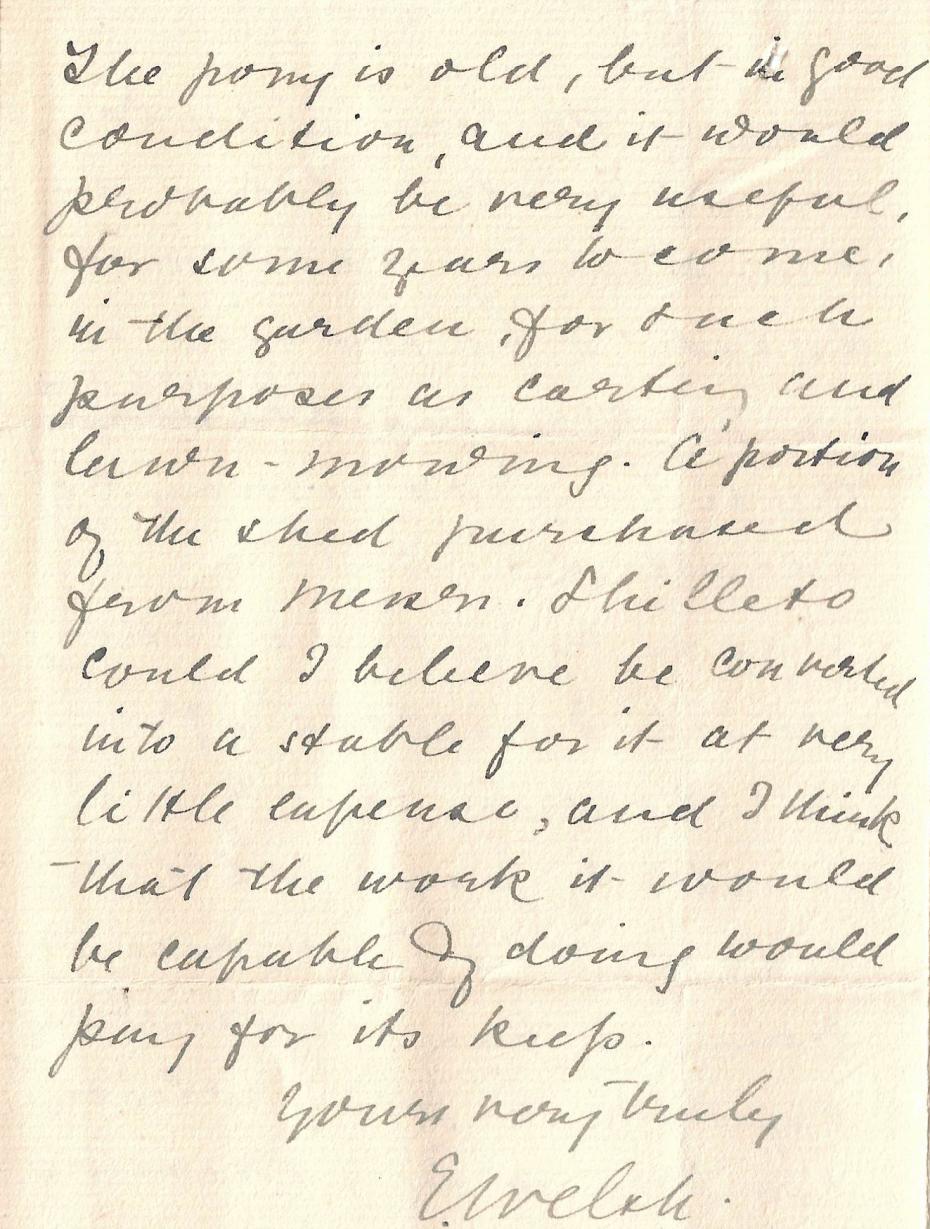 The pony is old, but in good
condition, and it would
probably be very useful,
for some years to come,
in the garden, for such
purposes as carting and
lawn-mowing. A portion
of the shed purchased
from Messrs. Shilleto
could I believe be converted
into a stable for it at very
little expense, and I think
that the work it would
be capable of doing would
pay for its keep.
Yours very truly
E. Welsh.